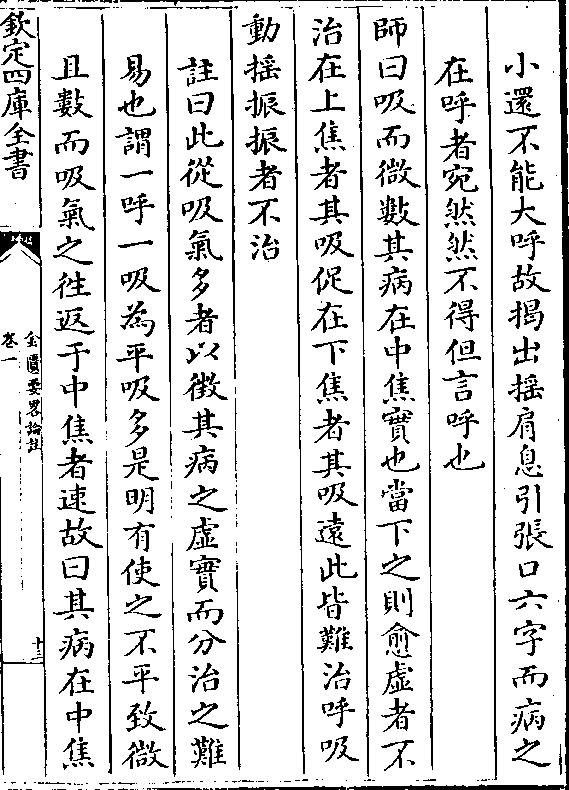 小還不能大呼故揭出搖肩息引張口六字而病之
在呼者宛然然不得但言呼也
師曰吸而微數其病在中焦實也當下之則愈虛者不
治在上焦者其吸促在下焦者其吸遠此皆難治呼吸
動搖振振者不治
註曰此從吸氣多者以徴其病之虛實而分治之難
易也謂一呼一吸為平吸多是明有使之不平致微
且數而吸氣之徃返于中焦者速故曰其病在中焦
欽定四庫全書
金匱要畧論註
卷一
十三